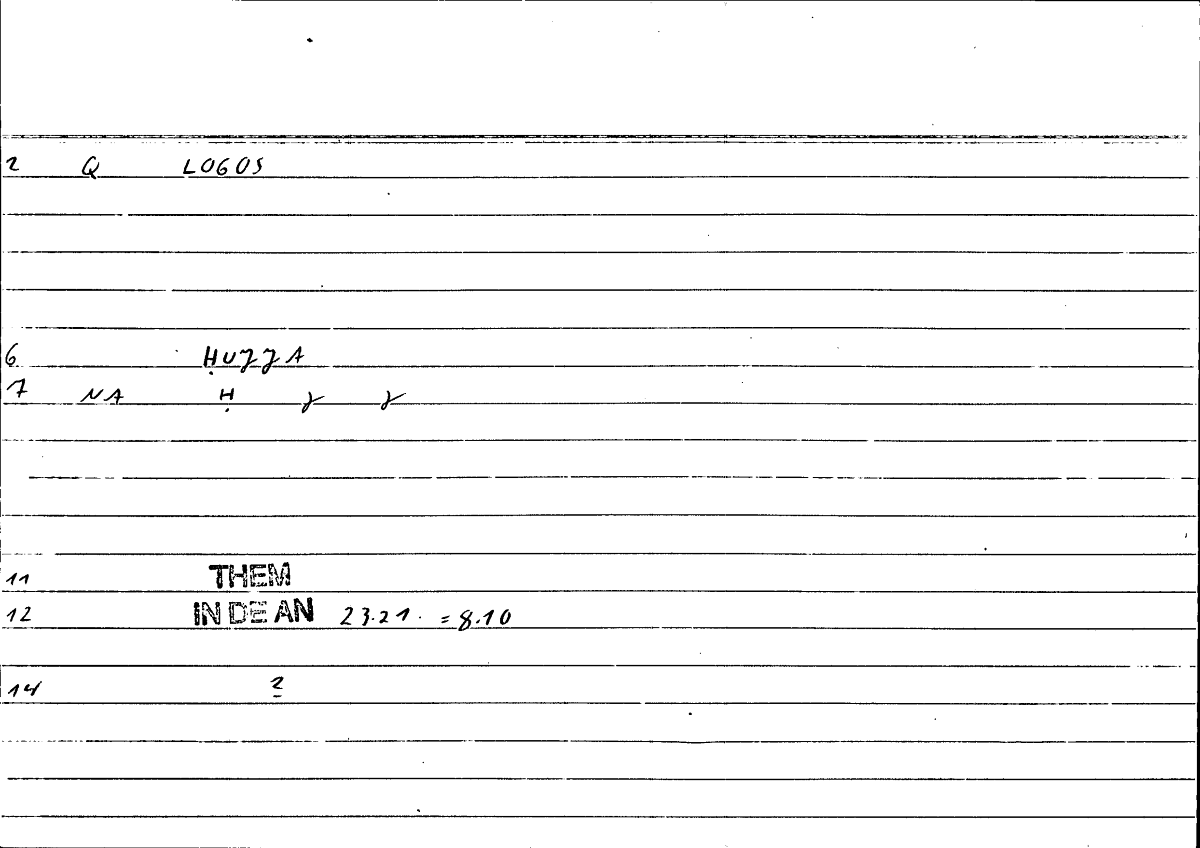 2 Q LOGOS
6 ḤUȜȜA
7 NA Ḥ Ȝ Ȝ
11 THEM
12 IN DE AN 23.21. = 8.10
14 2